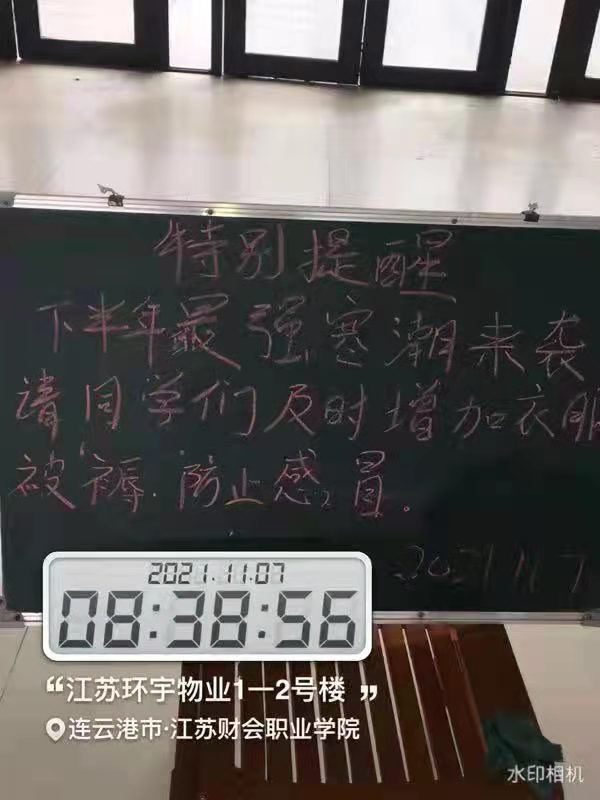 特别提醒
下半年最强寒潮来袭
请同学们及时增加衣服
被褥.防止感冒.
2021 11 7
2021.11.07
08:38:56
“江苏环宇物业1一2号楼”
连云港市·江苏财会职业学院
水印相机